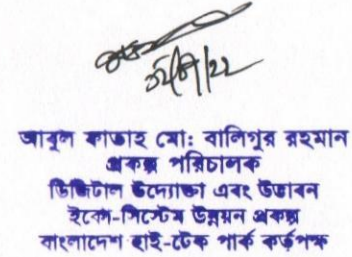 আবুল ফাতাহ মো: বালিগুর রহমান
প্রকল্প পরিচালক
ডিজিটাল উদ্যোক্তা এবং উদ্ভাবন
ইকো-সিস্টেম উন্নয়ন প্রকল্প
বাংলাদেশ হাই-টেক পার্ক কর্তৃপক্ষ